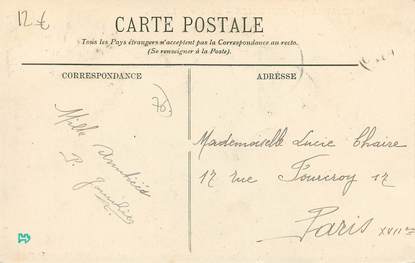 12 €
CARTE POSTALE
Tous les Pays étrangers n'acceptent pas la Correspondance au recto.
(Se renseigner à la Poste).
CORRESPONDANCE
ADRESSE
Mille
P.
Mademoiselle Lucie Chaire
17 rue Fourcroy 17
Paris XVIIe